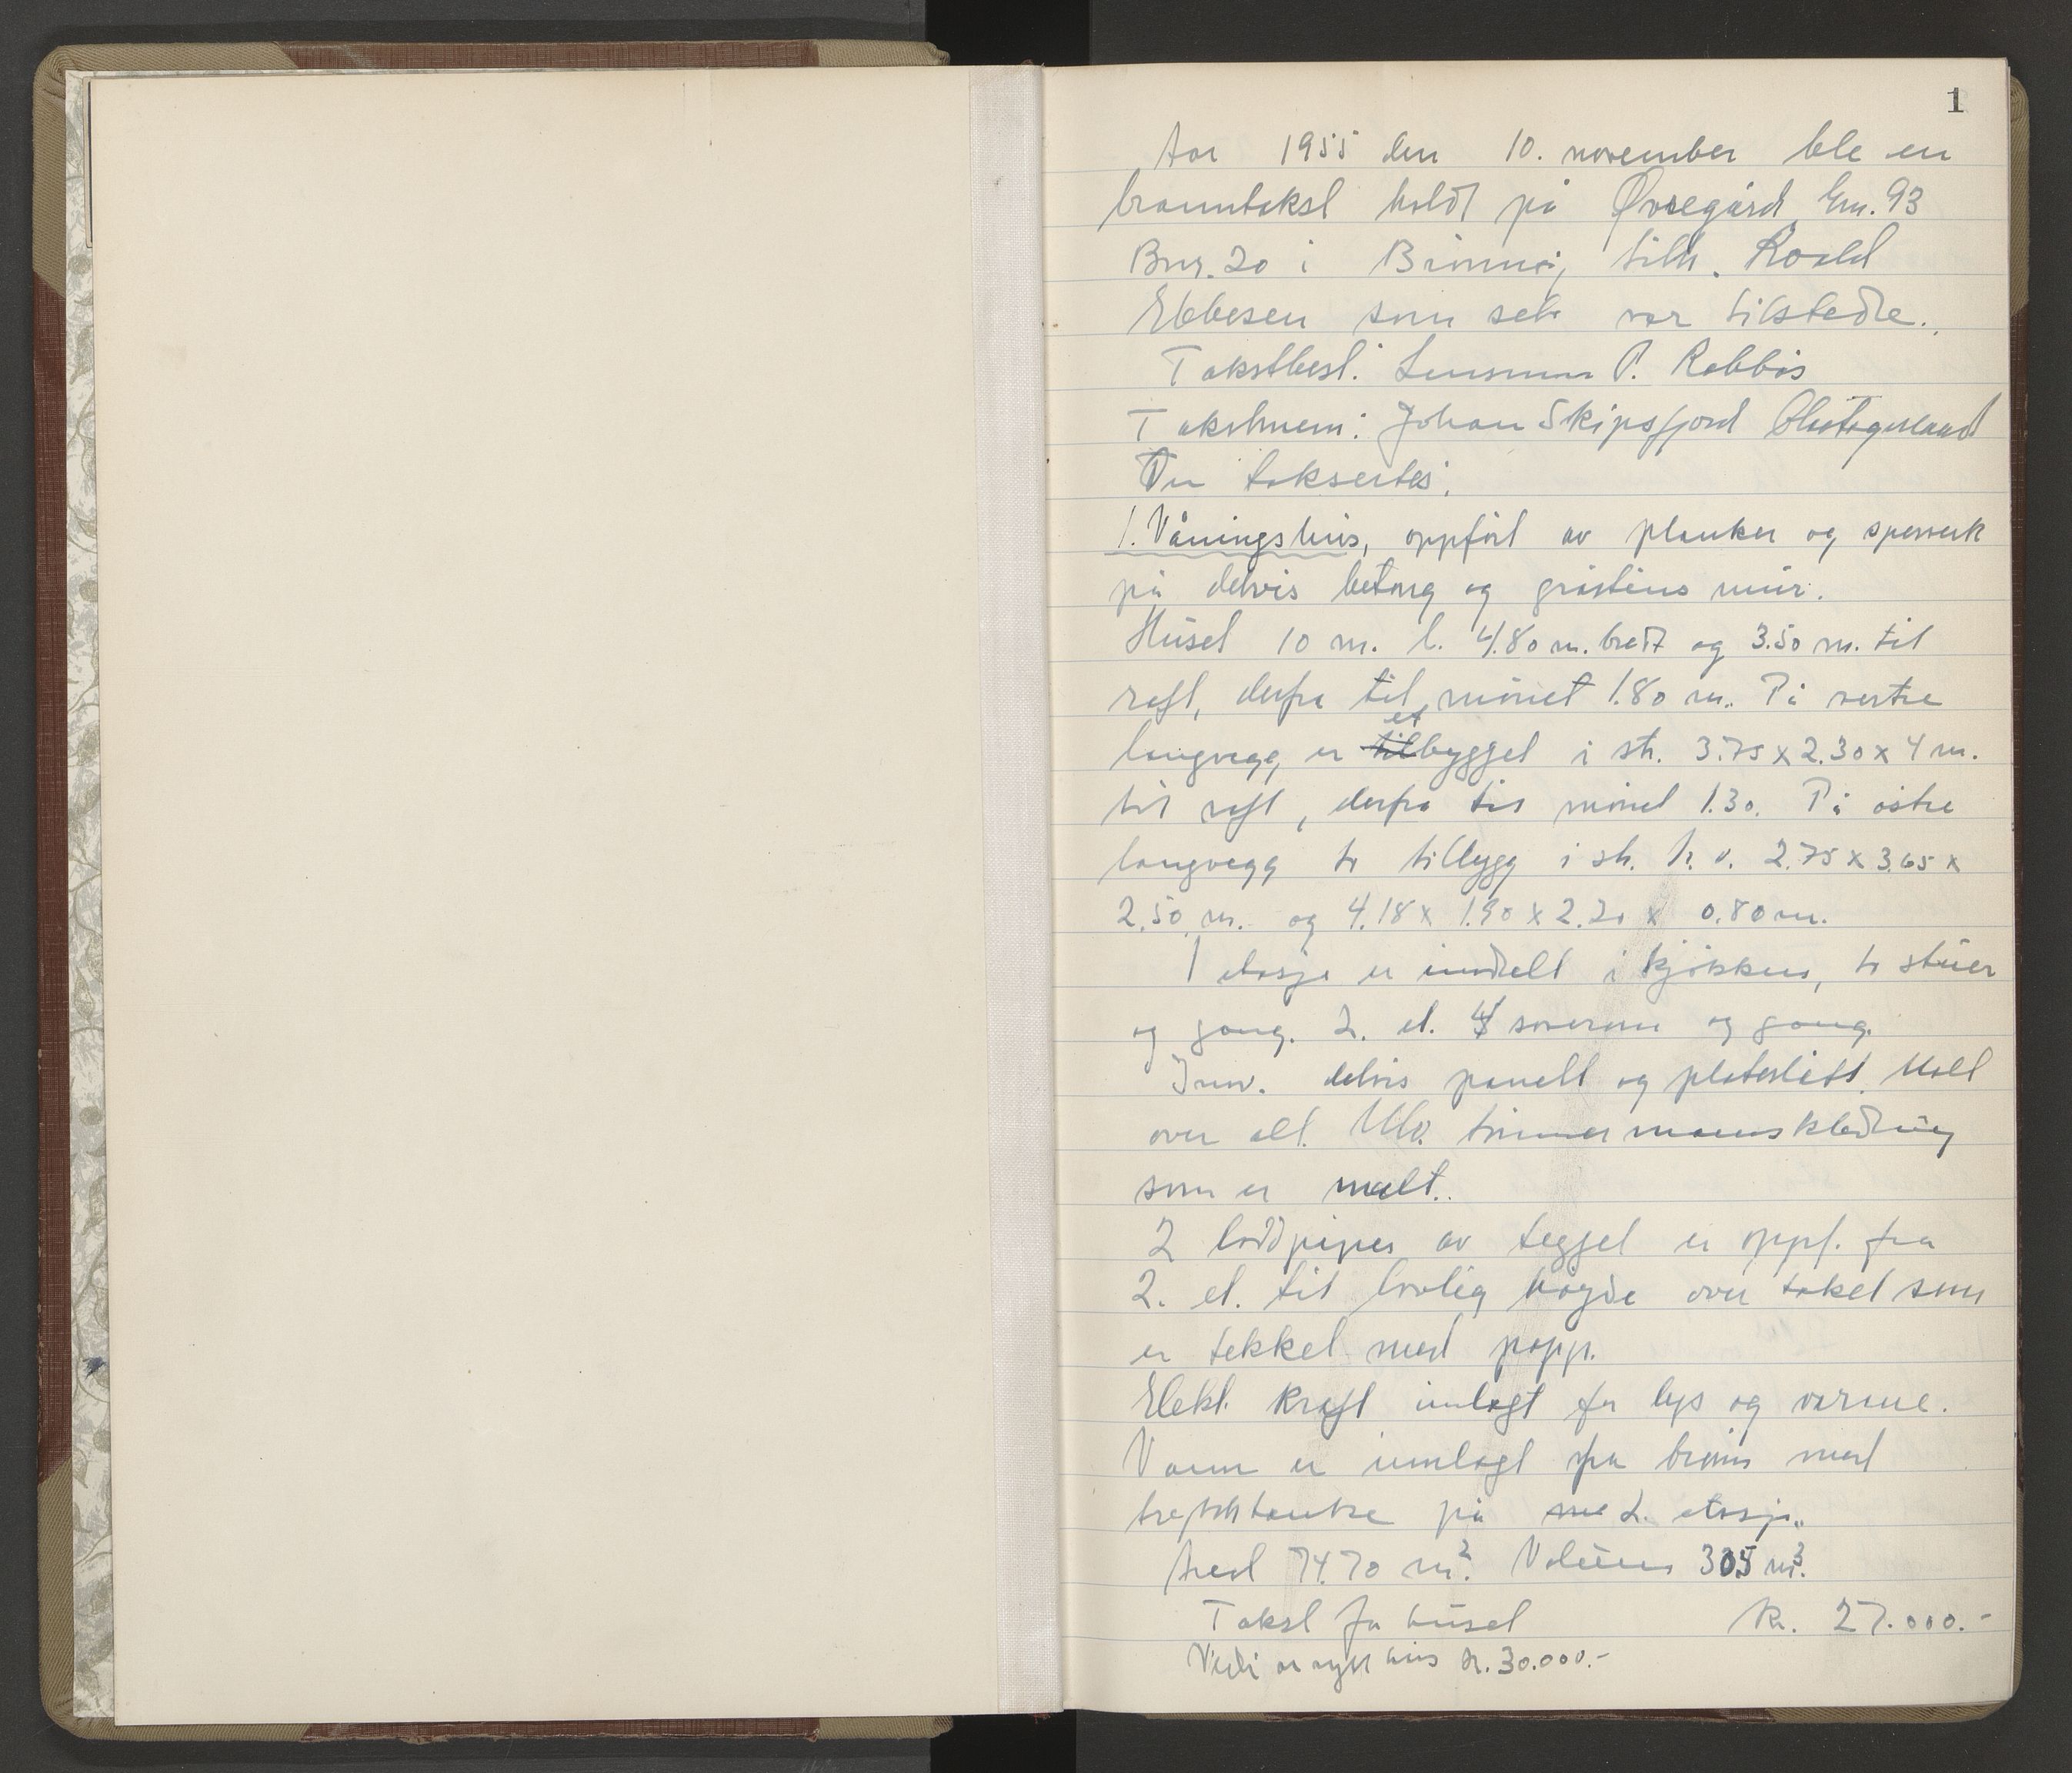 1
Aar 1955 den 10. november ble en
branntakst holdt på Øvregård Gnr. 93
Bnr. 20 i Brønnøy, tilh. Roald
Ebbesen som selv var tilstede.
Takstbest. Lensmann P. Rabbås
Takstmenn: Johan Skipsfjord
Der taksertes:
1. Våningshus, oppført av planker og sperrverk
på delvis betong og gråsteins mur.
Huset 10 m. l. 4.80 m. bredt og 3.50 m. til
raft, derfra til mønet 1.80 m. På vestre
langvegg er et tilbygget i str. 3.75 x 2.30 x 4 m.
til raft, derfra til mønet 1.30. På østre
langvegg to tilbygg i str. h. v. 2.75 x 3.65 x
2.50 m. og 4.18 x 1.90 x 2.20 x 0.80 m.
1 etasje er inndelt i kjøkken, to stuer
og gang. 2. et. 4 soverom og gang.
Innv. delvis panelt og plateslått. Malt
over alt. Utv. tømmermannskledning
som er malt.
2 loddpiper av teggel er oppf. fra
2. et. til lovlig høgde over taket som
er tekket med papp.
Elekt. kraft innlagt for lys og varme.
Vann er innlagt fra brønn med
på 2. etasje.
Areal 74.70 m². Volum 305 m³.
Takst for huset Kr. 27.000.-
Verdi av nytt hus kr. 30.000.-